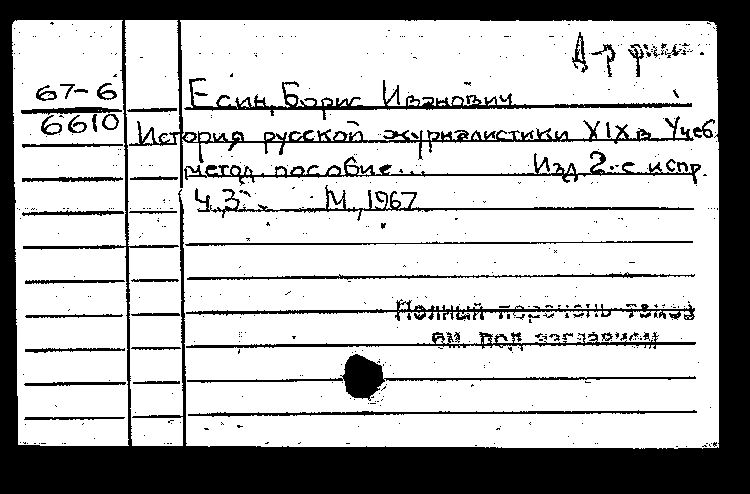 Д-р филол.
67-6
6610
Есин, Борис Иванович
История русской журналистики XIX в. Учеб.
метод. пособие... Изд 2-е испр.
Ч.3. М., 1967
Полный перечень томов
см. под заглавием